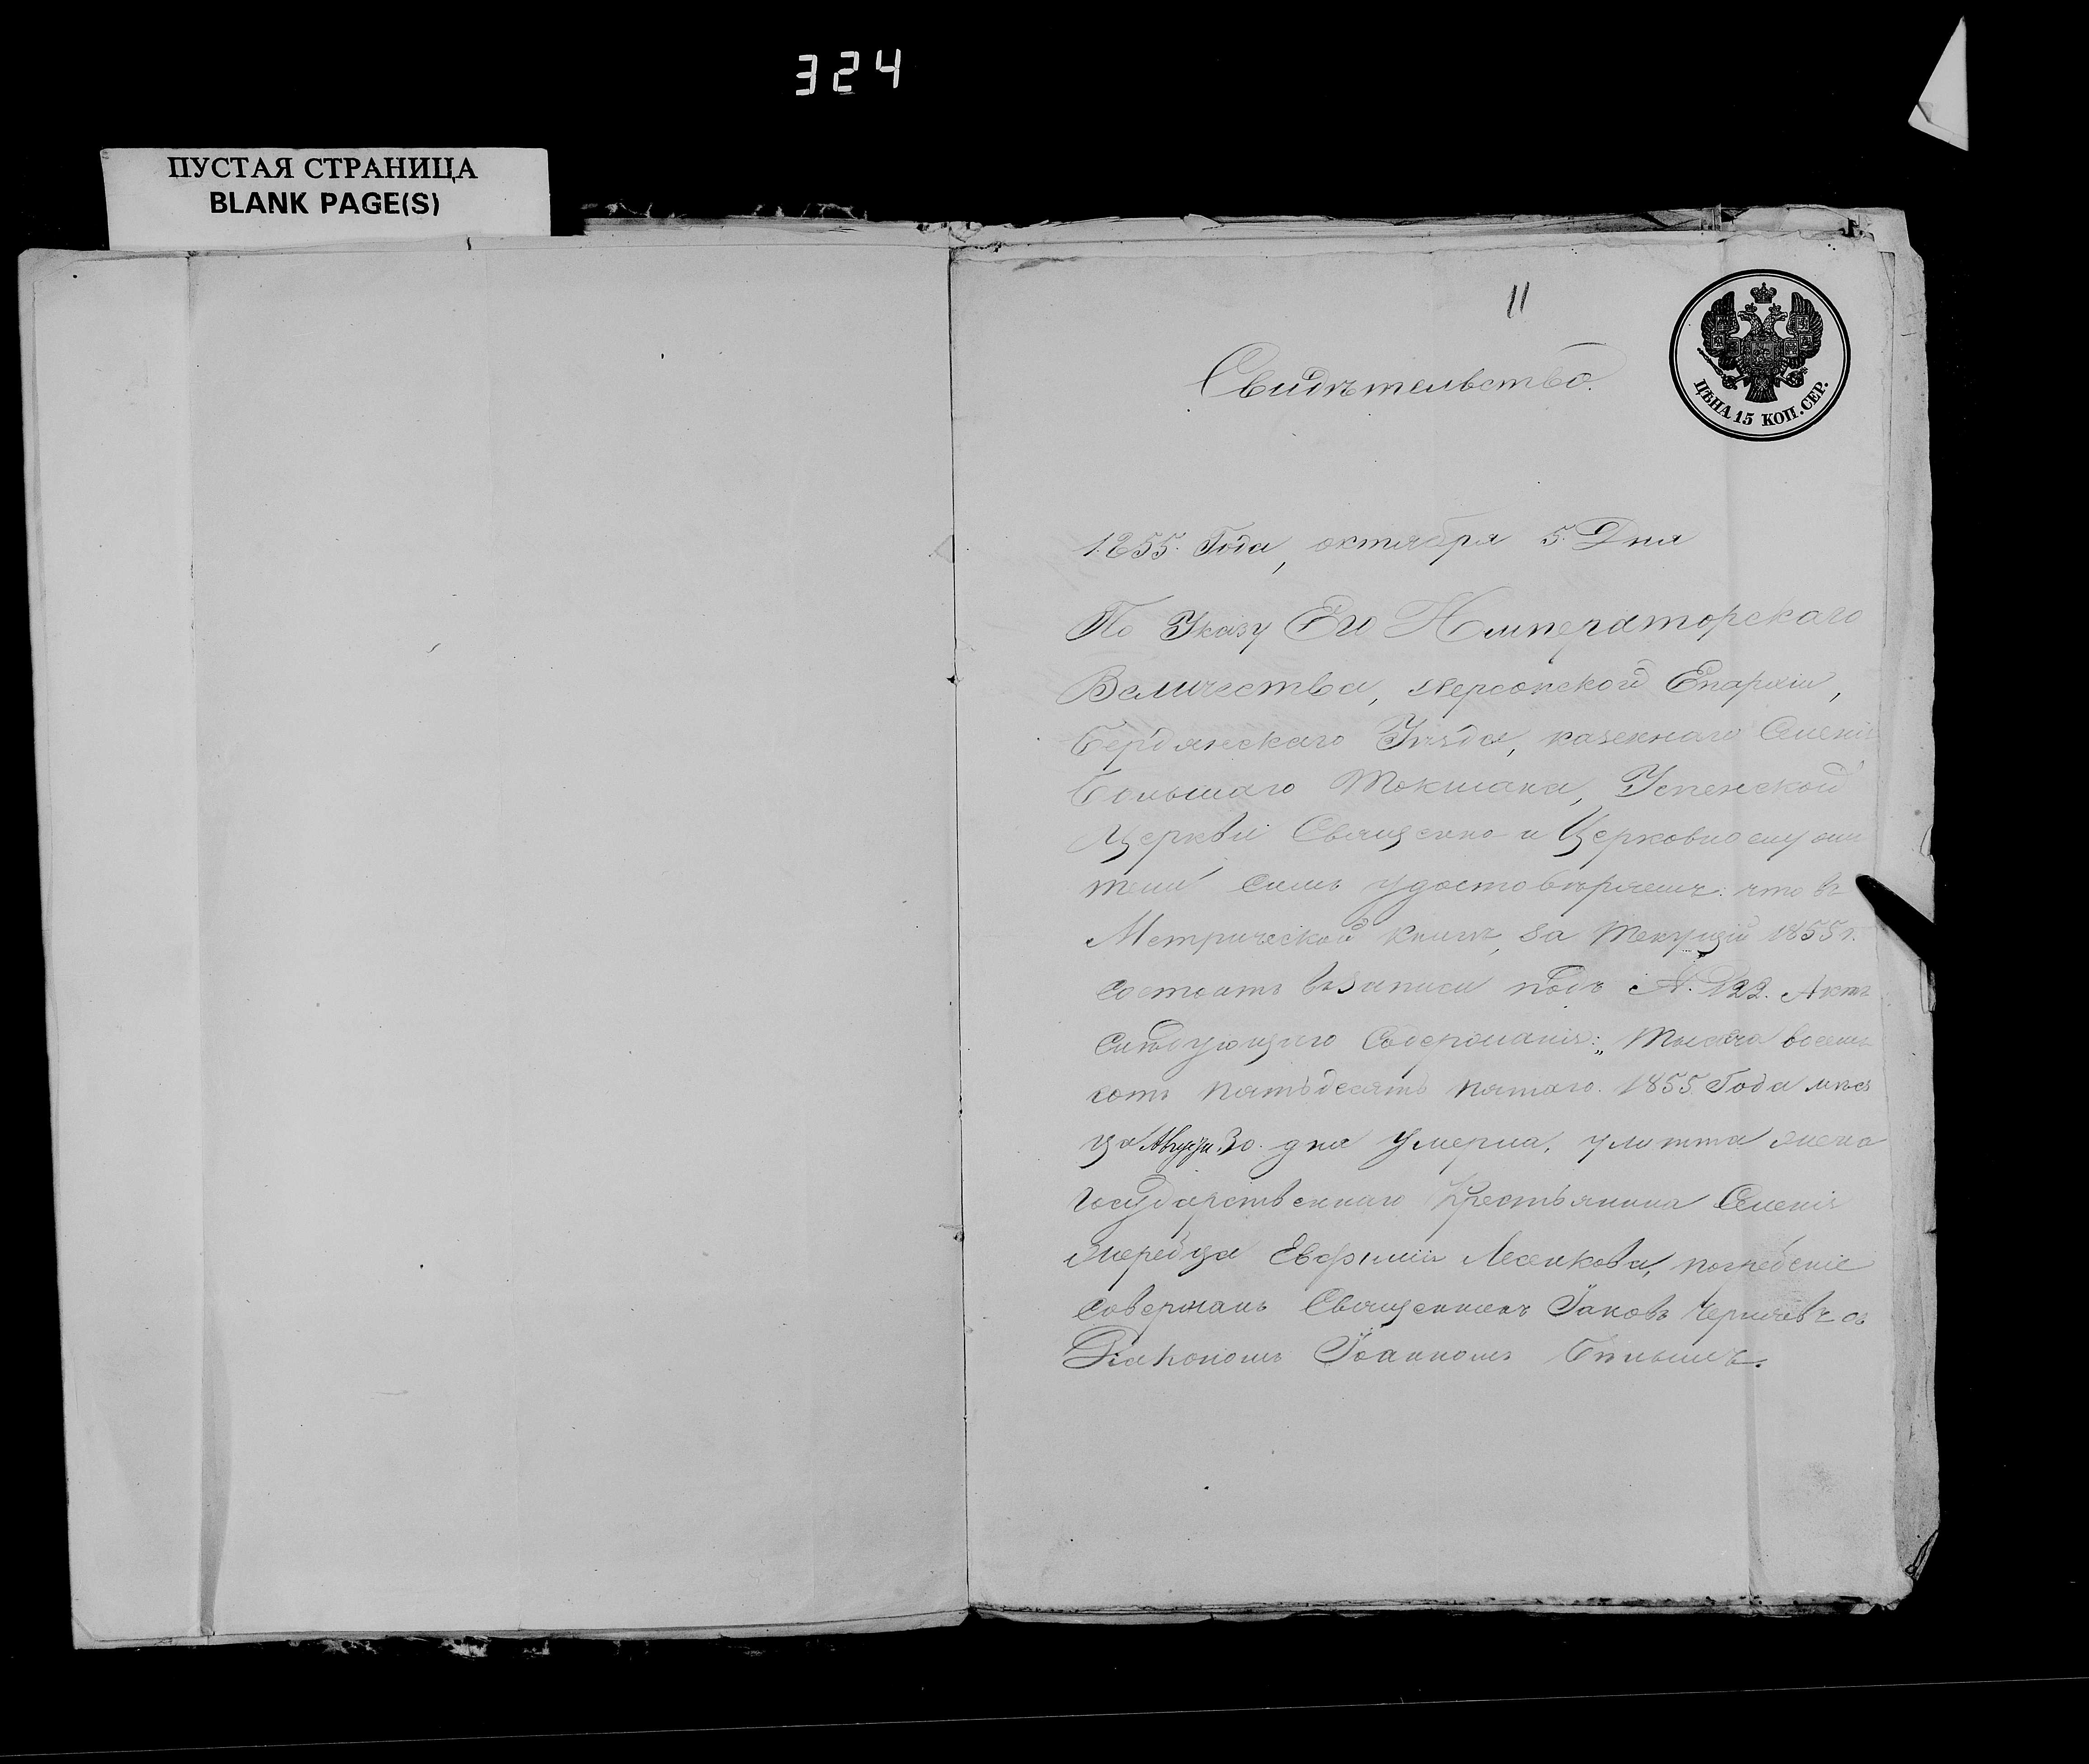 324
ПУСТАЯ СТРАНИЦА
BLANK PAGE(S)
11
ЦѢНА 15 КОП. СЕР.
Свидѣтельство.
1855. Года, октября 5. Дня
По Указу Его Императорскаго
Величества, Херсонской Епархіи,
Бердянскаго Уѣзда, казеннаго Селенія
Большаго Токмака, Успенской
Церкви Священно и Церковнослужи
тели симъ удостовѣряемъ: что въ
Метрической книгѣ, за текущій 1855 г.
состоитъ въ записи подъ № 122. Актъ
слѣдующаго содержанія: „ Тысяча восемь
сотъ пятьдесятъ пятаго. 1855. Года мѣся
ца Августа 30. дня умерла, улитта жена
государственнаго крестьянина Селенія
Жеребца Евфимія Лесенкова, погребеніе
совершалъ Священникъ Іаковъ съ
Діакономъ Іоанномъ